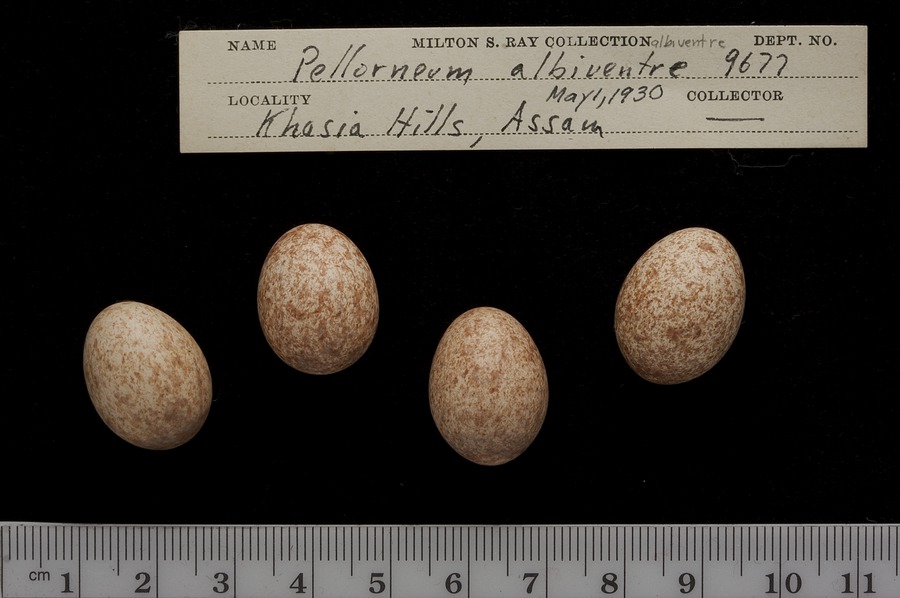 NAME MILTON S. RAY COLLECTION albiventre DEPT. NO.
Pellorneum albiventre 9677
LOCALITY May 1, 1930 COLLECTOR
Khasia Hills, Assam
cm 1 2 3 4 5 6 7 8 9 10 11